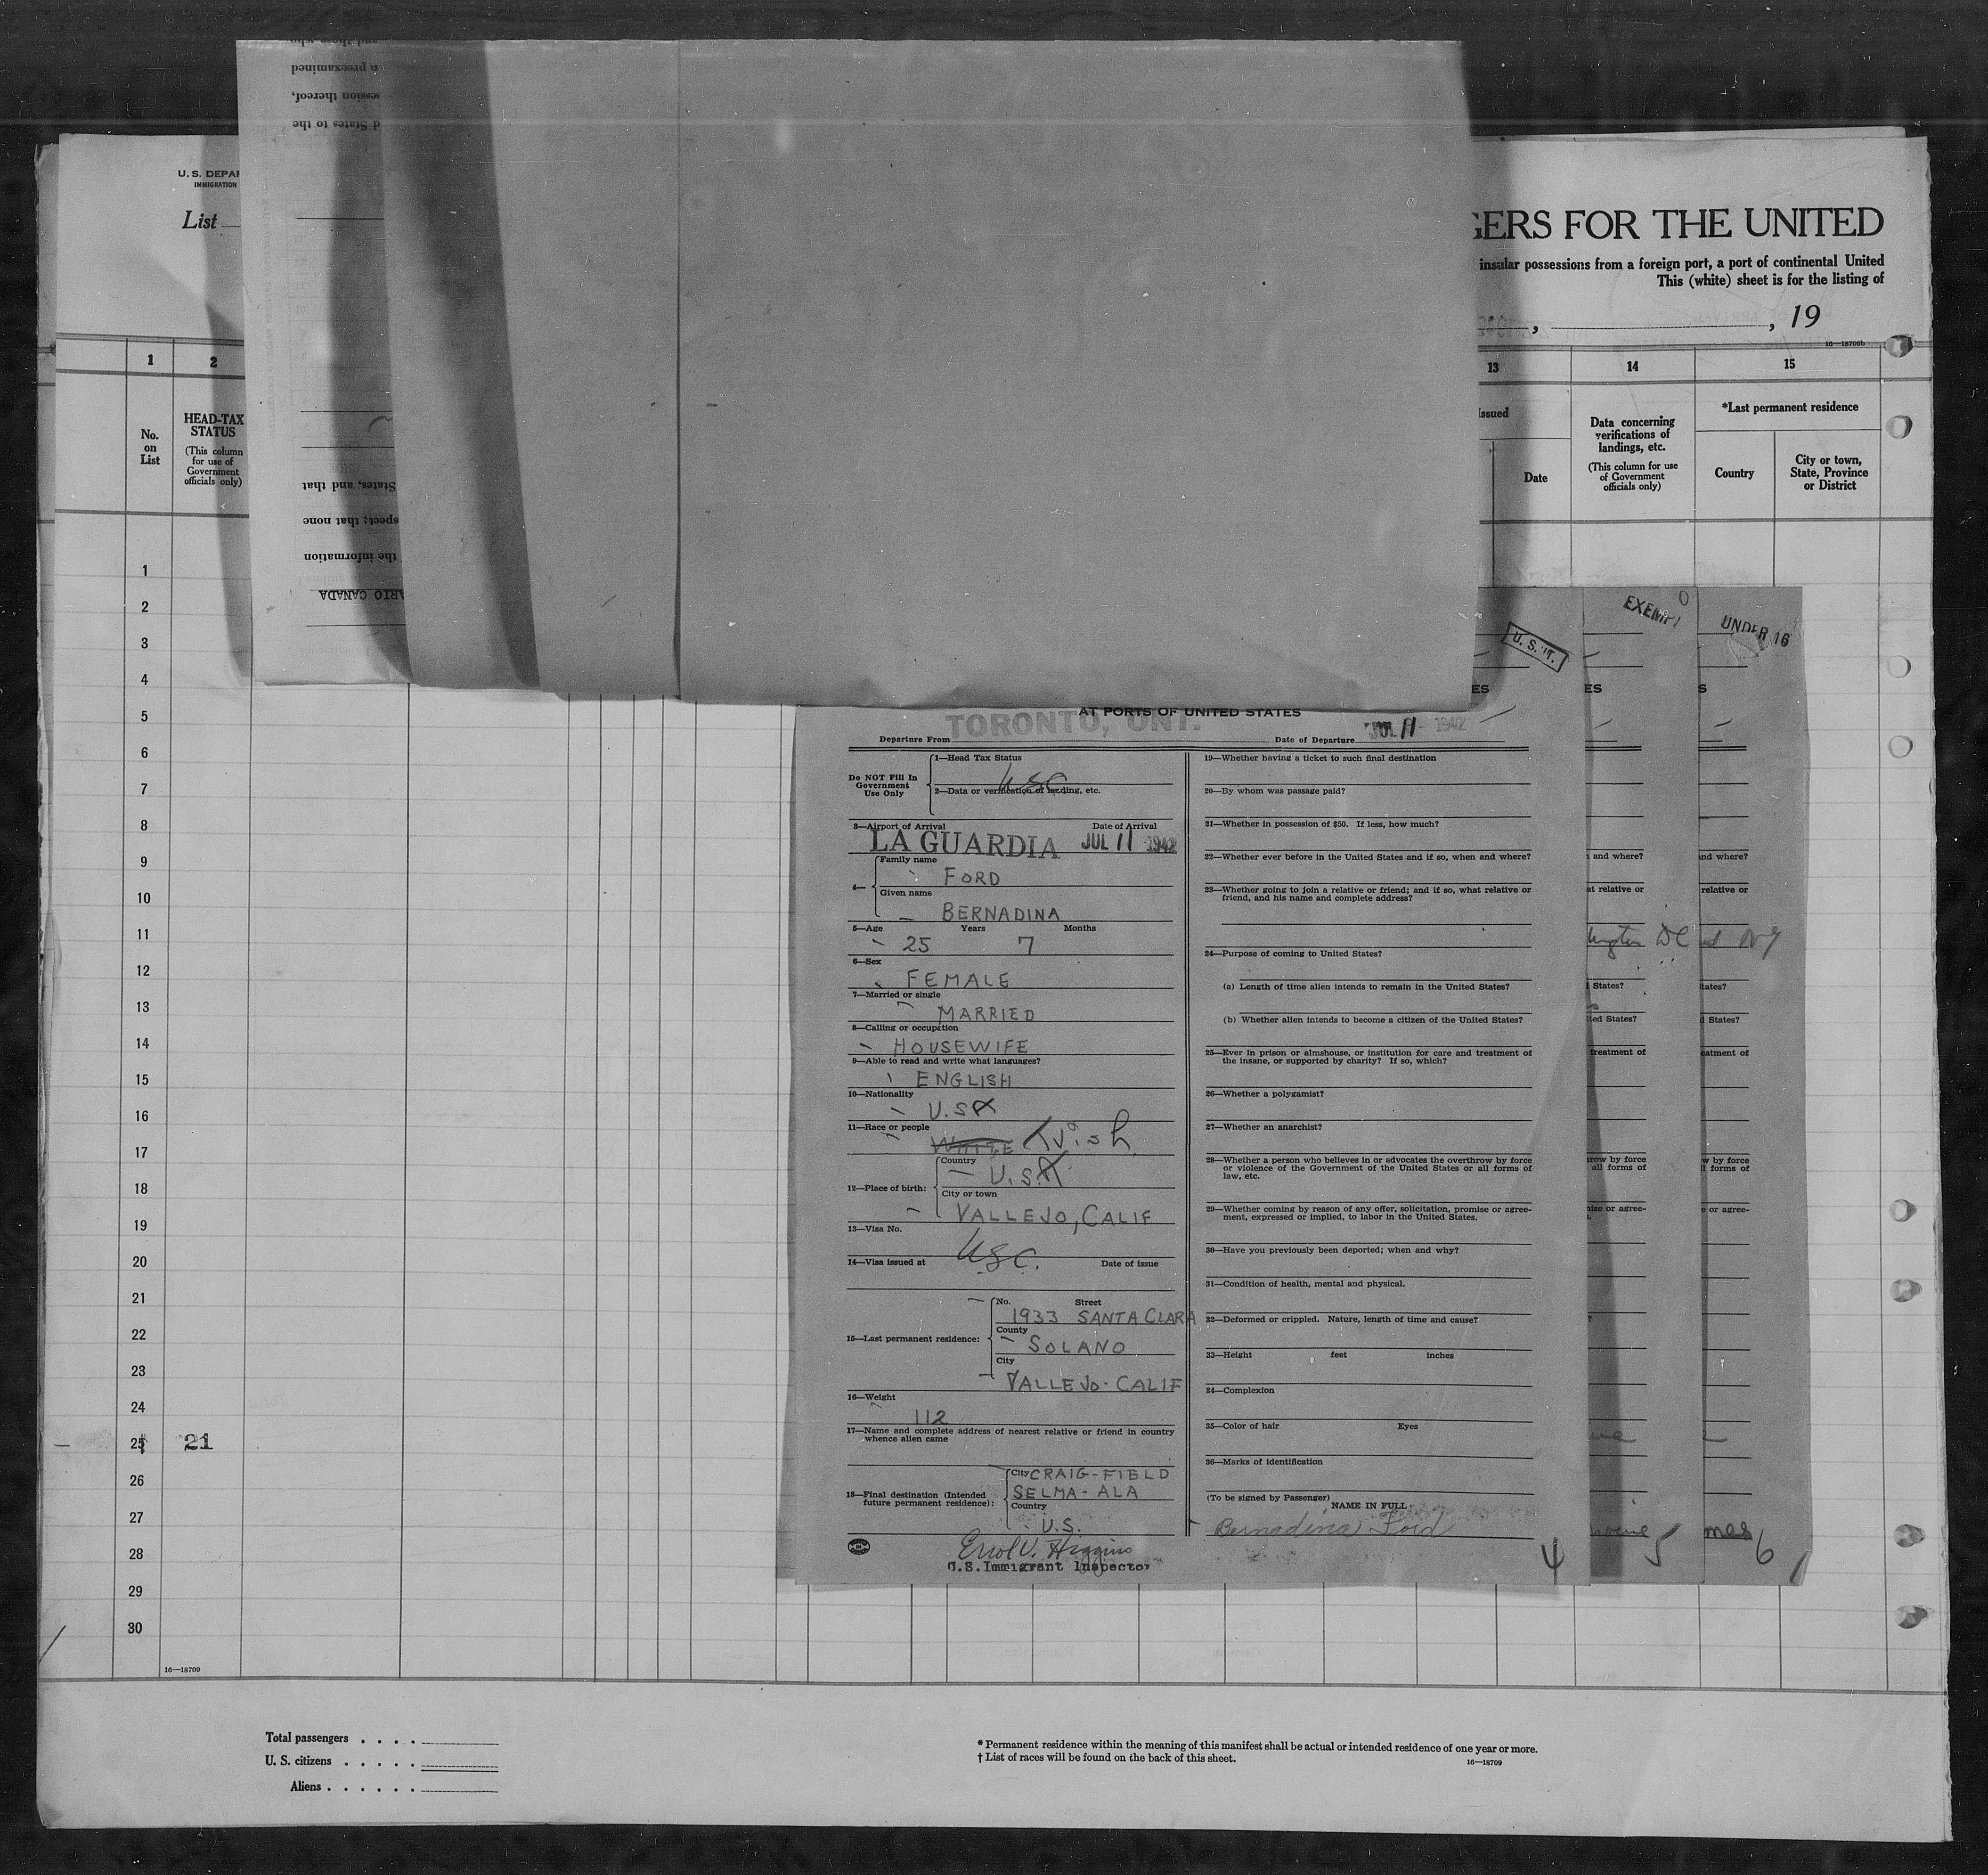 U. S. DEPAR
IMMIGRATION
List
GERS FOR THE UNITED
insular possessions from a foreign port, a port of continental United
This (white) sheet is for the listing of
, 19
16—18709b
1
2
13
14
15
No. on List
HEAD-TAX STATUS
(This column for use of Government officials only)
Issued
Date
Data concerning verifications of landings, etc.
(This column for use of Government officials only)
*Last permanent residence
Country
City or town, State, Province or District
n preexamined
session thereof,
d States to the
States, and that
spect; that none
the information
ARIO CANADA
1
2
3
4
5
6
7
8
9
10
11
12
13
14
15
16
17
18
19
20
21
22
23
24
25
21
26
27
28
29
30
16—18709
U. S. IT.
EXEMPT
UNDER 16
ES
ES
S
AT PORTS OF UNITED STATES
TORONTO, ONT.
JUL 11 1942
Departure From
Date of Departure
Do NOT Fill In Government Use Only
1—Head Tax Status
USC
2—Data or verification of landing, etc.
3—Airport of Arrival
Date of Arrival
LA GUARDIA JUL 11 1942
4—
Family name
FORD
Given name
BERNADINA
5—Age Years Months
25 7
6—Sex
FEMALE
7—Married or single
MARRIED
8—Calling or occupation
HOUSEWIFE
9—Able to read and write what languages?
ENGLISH
10—Nationality
U.SA
11—Race or people
WHITE Irish
12—Place of birth:
Country
U.SA
City or town
VALLEJO, CALIF
13—Visa No.
USC.
14—Visa issued at
Date of issue
15—Last permanent residence:
No. Street
1933 SANTA CLARA
County
SOLANO
City
VALLEJO-CALIF
16—Weight
112
17—Name and complete address of nearest relative or friend in country
whence alien came
18—Final destination (Intended
future permanent residence):
City CRAIG-FIELD
SELMA-ALA
Country
U.S.
Errol V. Higgins
U.S. Immigrant Inspector
19—Whether having a ticket to such final destination
20—By whom was passage paid?
21—Whether in possession of $50. If less, how much?
22—Whether ever before in the United States and if so, when and where?
23—Whether going to join a relative or friend; and if so, what relative or
friend, and his name and complete address?
24—Purpose of coming to United States?
(a) Length of time alien intends to remain in the United States?
(b) Whether alien intends to become a citizen of the United States?
25—Ever in prison or almshouse, or institution for care and treatment of
the insane, or supported by charity? If so, which?
26—Whether a polygamist?
27—Whether an anarchist?
28—Whether a person who believes in or advocates the overthrow by force
or violence of the Government of the United States or all forms of
law, etc.
29—Whether coming by reason of any offer, solicitation, promise or agree-
ment, expressed or implied, to labor in the United States.
30—Have you previously been deported; when and why?
31—Condition of health, mental and physical.
32—Deformed or crippled. Nature, length of time and cause?
33—Height feet inches
34—Complexion
35—Color of hair Eyes
36—Marks of identification
(To be signed by Passenger)
NAME IN FULL
Bernadina Ford
4
and where?
at relative or
ington DC
States?
ted States?
treatment of
row by force
all forms of
ise or agree-
5
nd where?
relative or
d NY
tates?
d States?
eatment of
w by force
l forms of
e or agree-
mes
6
Total passengers
U. S. citizens
Aliens
* Permanent residence within the meaning of this manifest shall be actual or intended residence of one year or more.
† List of races will be found on the back of this sheet.
16—18709